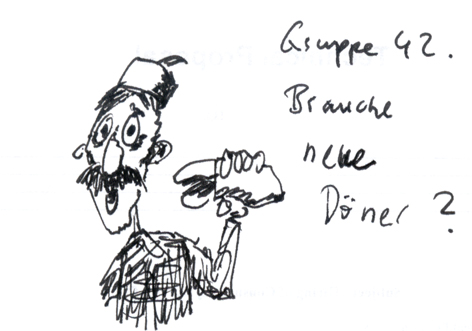 Gruppe 42.
Brauche
neue
Döner?